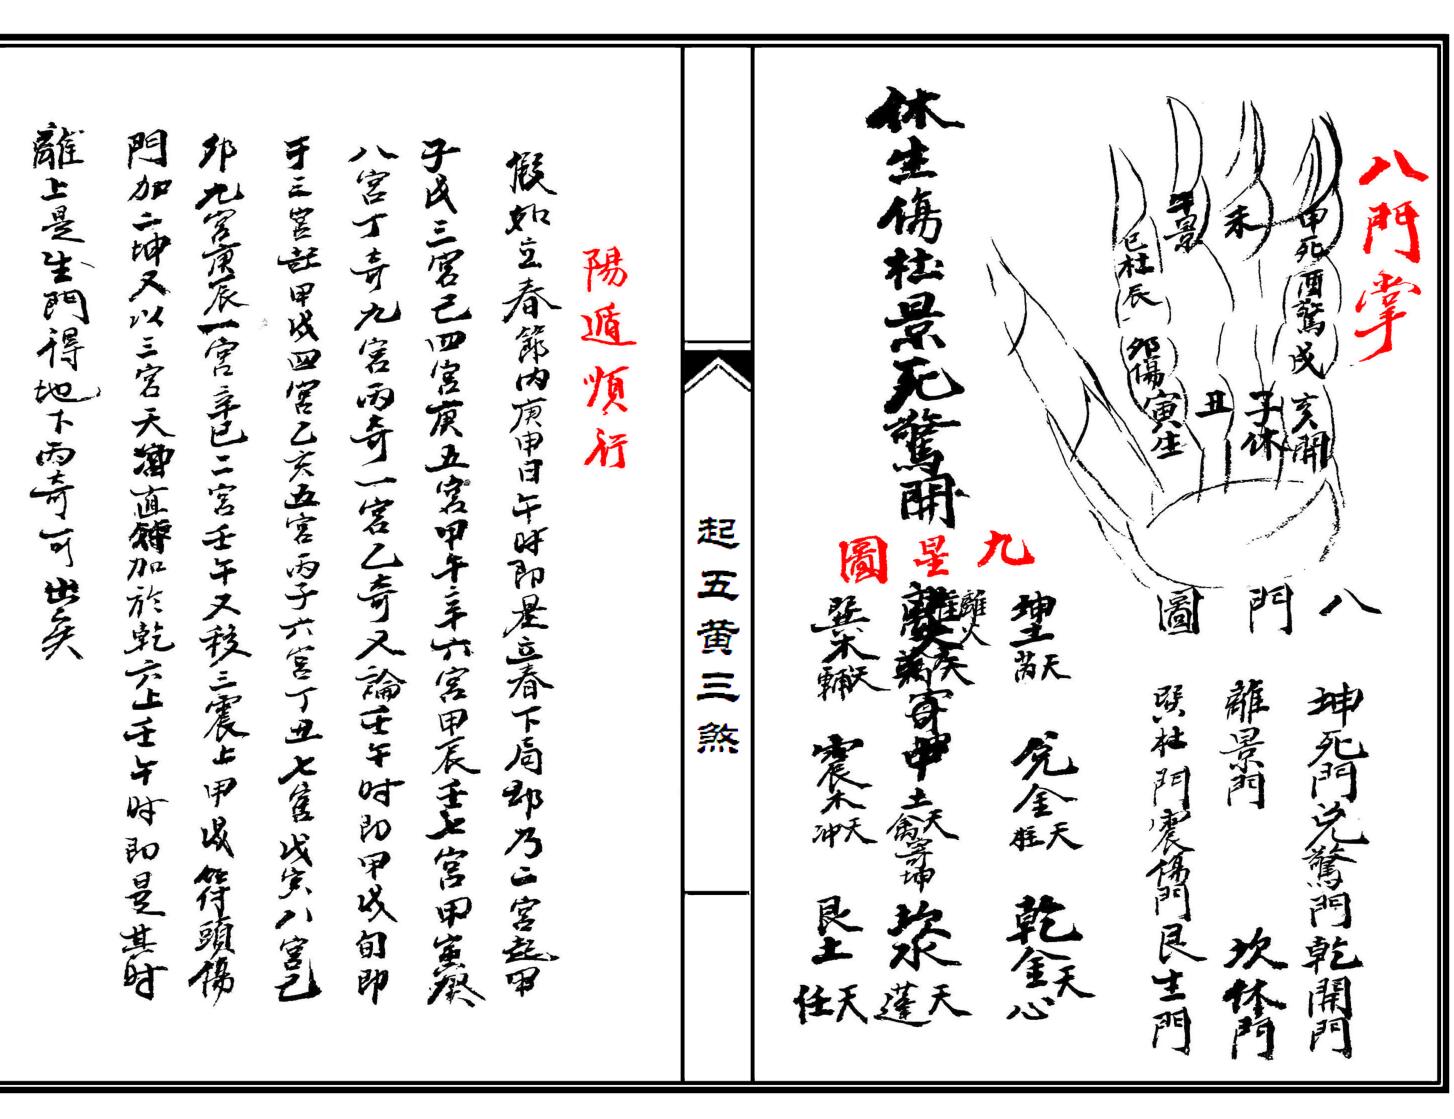 八門掌
申死酉驚戌
亥開
未
子休
午景
丑
巳杜辰
卯傷寅生
八門圖
坤死門兌驚門乾開門
離景門
坎休門
巽杜門震傷門艮生門
休生傷杜景死驚開
九星圖
坤土天芮
兌金天柱
乾金天心
離火
寄中土天禽寄坤
坎水天蓬
巽木天輔
震木天冲
艮土天任
起五黄三煞
陽遁順行
假如立春節内庚申日午時即是立春下局郡乃二宮起甲
子戊三宮己四宮庚五宮甲午辛六宮甲辰壬七宮甲寅癸
八宮丁奇九宮丙奇一宮乙奇又論壬午时即甲戌旬即
于三宮起甲戌四宮乙亥五宮丙子六宮丁丑七宮戊寅八宮己
卯九宮庚辰一宮辛巳二宮壬午又移三震上甲戌符頭傷
門加二坤又以三宮天冲直符加於乾六上壬午时即是其时
離上是生門得地下丙奇可出矣